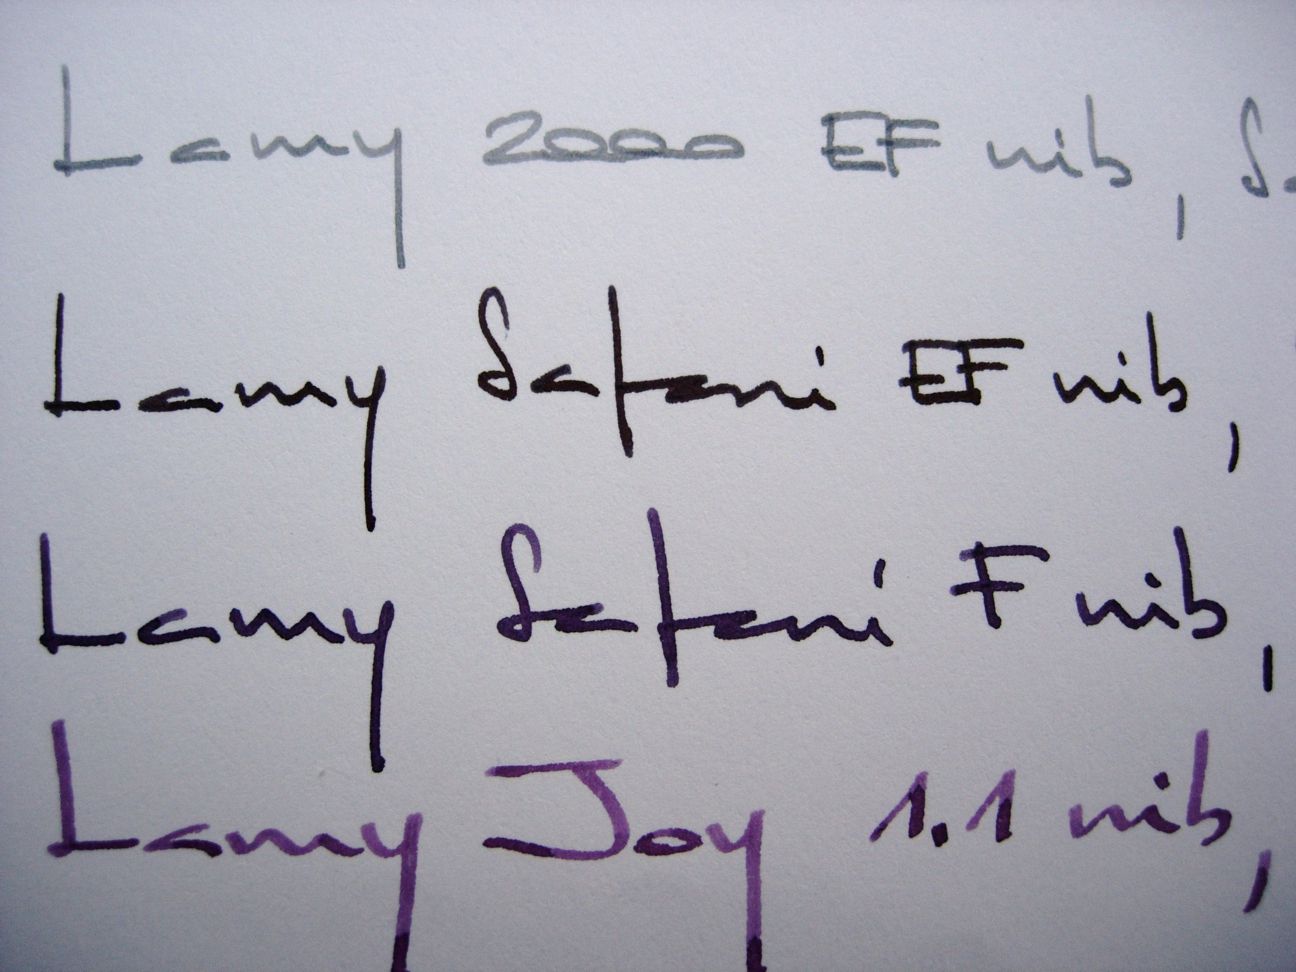 Lamy 2000 EF nib, Sa
Lamy Safari EF nib,
Lamy Safari F nib,
Lamy Joy 1.1 nib,